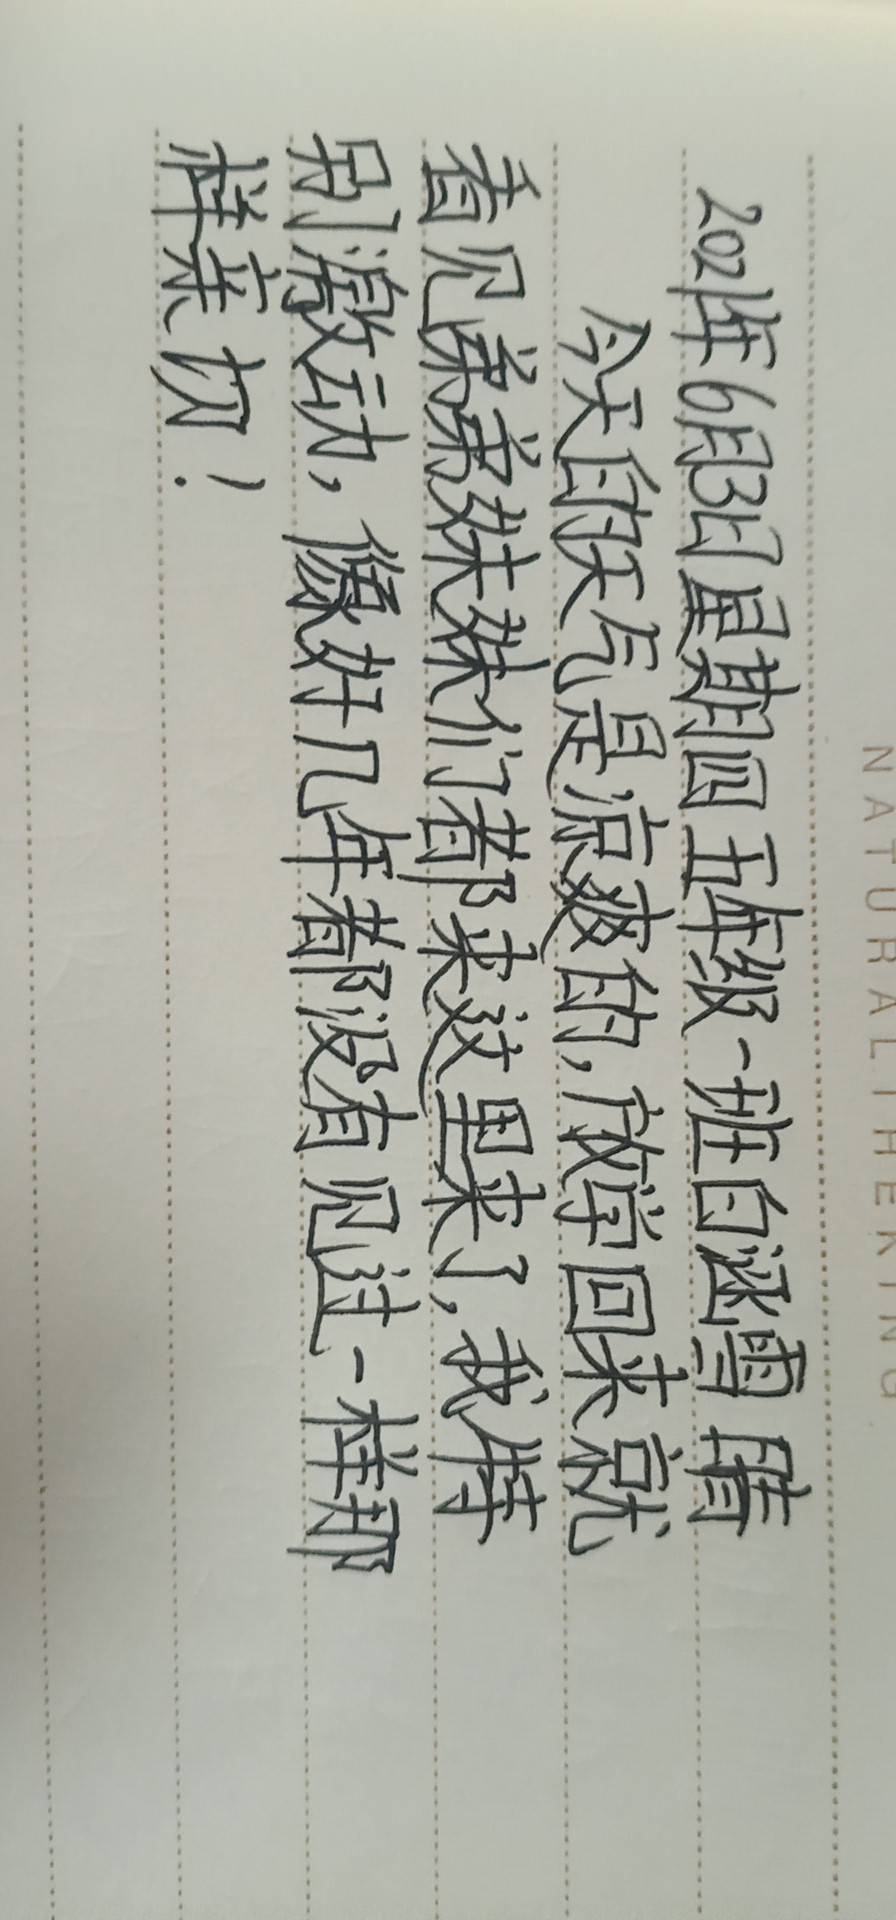 NATURALTHEKING
2021年6月3日星期四五年级一班白涵雪 晴
今天的天气是凉爽的,放学回来就
看见弟弟妹妹们都来这里来了,我特
别激动,像好几年都没有见过一样那
样亲切!